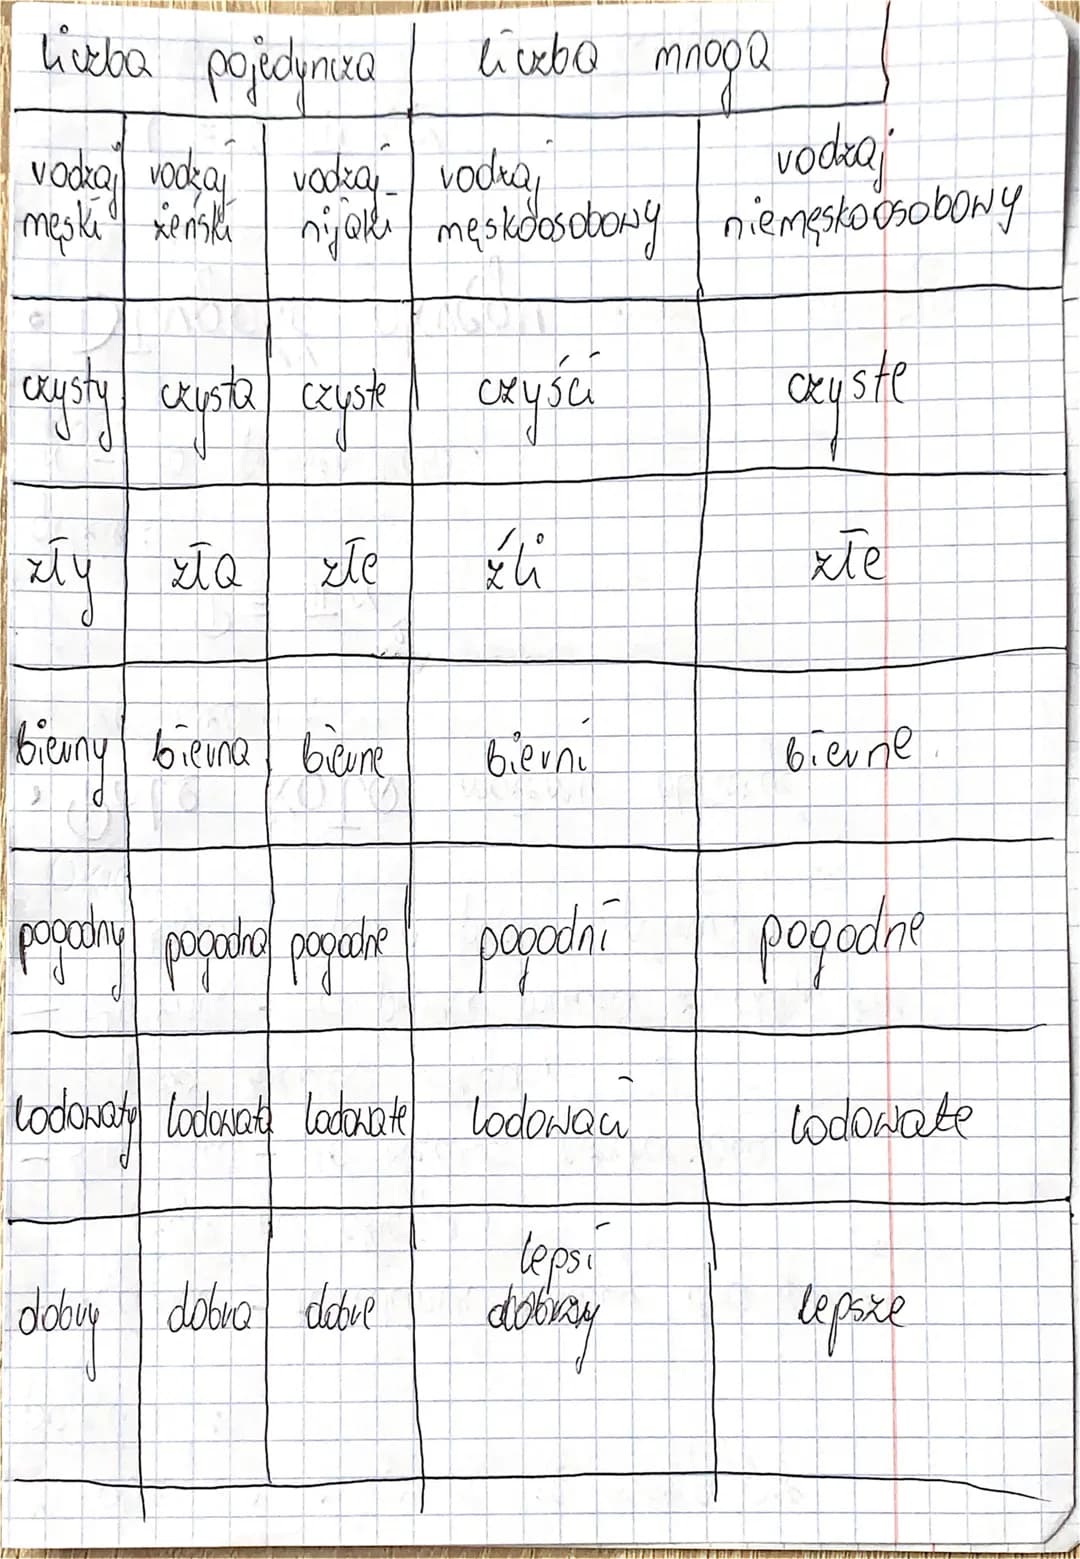 liczba pojedyncza liczba mnoga
rodzaj rodzaj rodzaj rodzaj rodzaj
męski żeński nijaki męskoosobowy niemęskoosobowy
czysty czysta czyste czyści czyste
zły zła złe źli złe
bierny bierna bierne bierni bierne
pogodny pogodna pogodne pogodni pogodne
lodowaty lodowata lodowate lodowaci lodowate
lepsi
dobry dobra dobre dobrzy lepsze